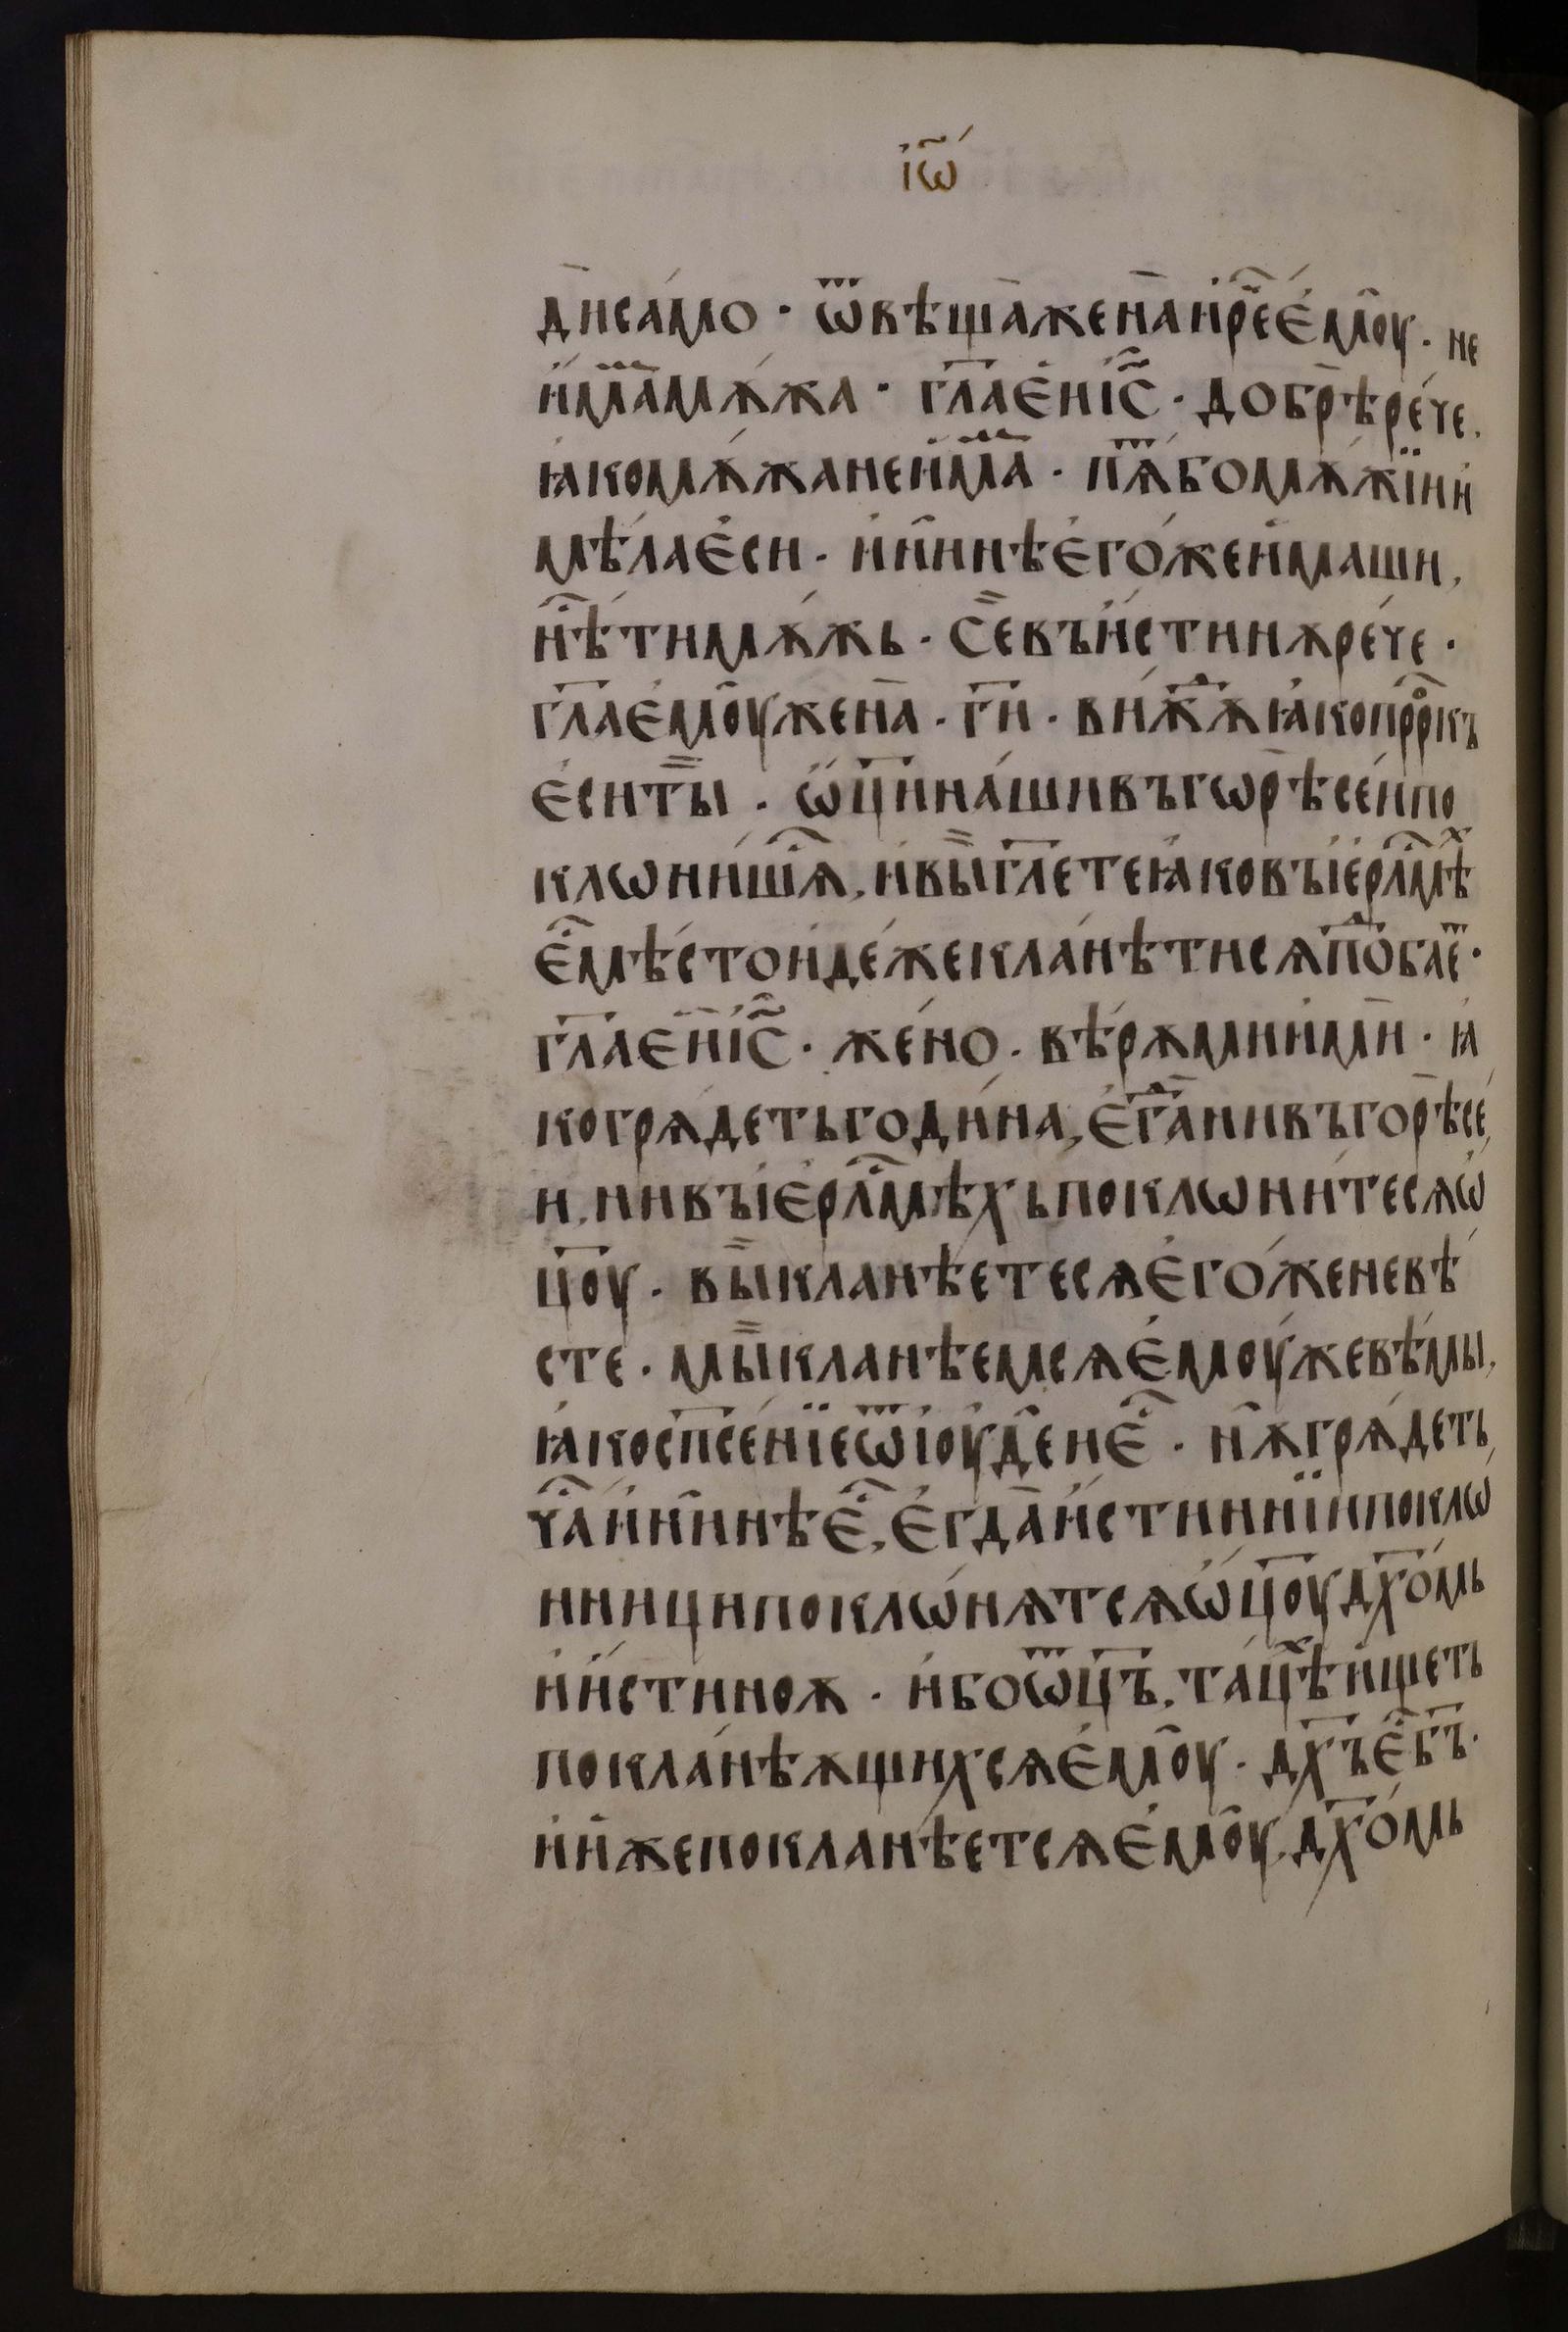 іѡ҃
ди са́мо · ѿвѣща̀ жена̀ и҆ рече̑ е҆моу̑ · не
и҆ма̏мь мѫ́жа · гл҃а е҆и і҆с҃ · добрѣ̀ ре́че ·
ꙗ҆ко мѫ́жа не и҆ма̏мь · пѧ̏ бо мѫ́жїи и҆
мѣ́ла е҆си · и҆ ны̑нѣ е҆го́же и҆маши ,
нѣ̑ ти мѫ́жь · се̏ въи́стинѫ ре́че ·
гл҃а е҆моу̑ жена̀ · г҃и · ви́жⷣѫ ꙗ҆ко прⷪ҇ркъ
е҆си ты̏ · ѡ҆ц҃и на́ши въ гѡрѣ̀ се́и по
клѡни́шѧ̑ , и҆ вы̏ гл҃ете ꙗ҆ко въ і҆ерⷭ҇лмѣⷯ
е҆ⷭ҇ мѣ́сто и҆де́же кла́нѣти сѧ поⷣбае̏ ·
гл҃а е҆и̏ і҆с҃ · же́но · вѣ́рѫ ми и҆ми̏ · ꙗ҆
ко грѧ́деть годи́на , е҆гⷣа̀ ни въ горѣ̀ се́
и , ни въ і҆ерⷭ҇лмѣхь поклѡни́те сѧ ѡ҆
ц҃оу · вы̏ кланѣете сѧ е҆го́же не вѣ́
сте · мы̏ кланѣем сѧ е҆моу́же вѣ́мы ,
ꙗ҆ко сп҃се́нїе ѿ і҆оуде̑и е҆ⷭ҇ · нѫ̑ грѧ́деть
ча̑ и҆ ны̑нѣ е҆ⷭ҇ , е҆гда̀ и҆́стиннїи поклѡ
ни́ци поклѡ́нѧт сѧ ѡ҆ц҃оу дх҃о́мь
и҆ и҆́стиноѫ · и҆бо ѡ҆ц҃ъ , та́цѣⷯ и҆́щеть
покла́нѣѫщих сѧ е҆моу̑ · дх҃ъ е҆ⷭ҇ б҃ъ ·
и҆ и҆же покланѣ́ет сѧ е҆моу̑ , дх҃о́мь